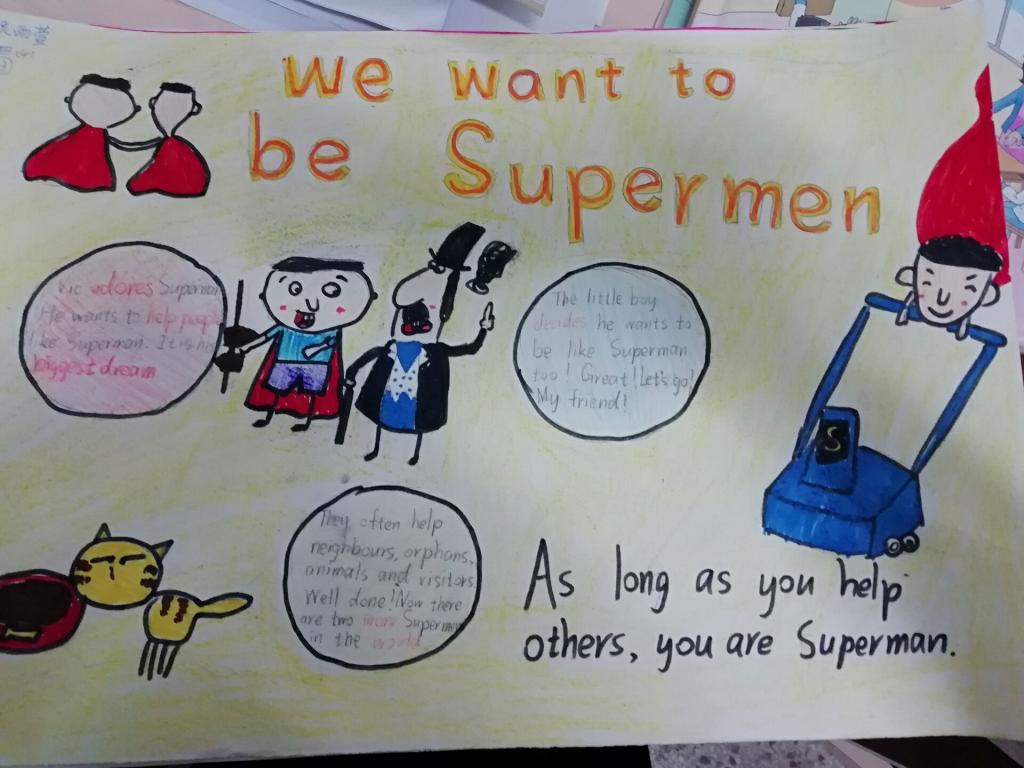 雨萱
We want to
be Supermen
Vic adores Superman
He wants to help people
like Superman. It is his
biggest dream
The little boy
decides he wants to
be like Superman
too! Great! Let's go!
My friend!
S
They often help
neighbours, orphans,
animals and visitors
Well done! Now there
are two more Supermen
in the world.
As long as you help
others, you are Superman.